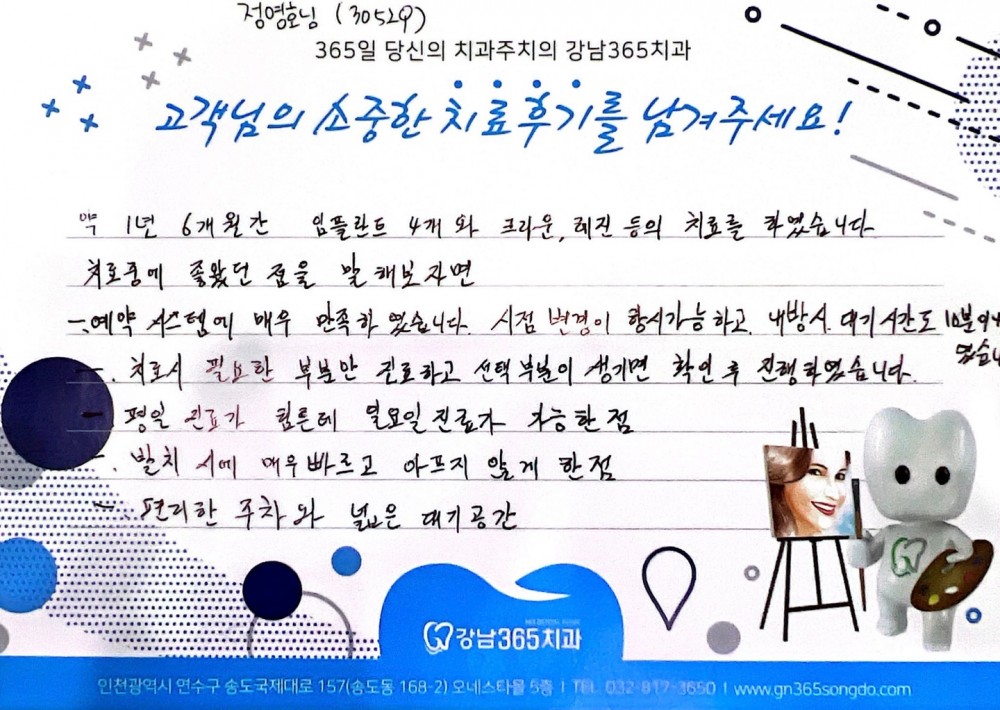 정영호님 (30529)
365일 당신의 치과주치의 강남365치과
고객님의 소중한 치료후기를 남겨주세요!
약 1년 6개월간 임플란트 4개 와 크라운, 레진 등의 치료를 하였습니다.
치료중에 좋았던 점을 말 해보자면
-. 예약 시스템에 매우 만족하 였습니다. 시점 변경이 항시가능하고, 내방시 대기시간도 10분이내
였습니
-. 치료시 필요한 부분만 진료하고 선택부분이 생기면 확인 후 진행하였습니다.
- 평일 진료가 힘든데 일요일진료가 가능한점
-. 발치 시에 매우빠르고 아프지 않게 한점
- 편리한 주차 와 넓은 대기공간
강남365치과
인천광역시 연수구 송도국제대로 157(송도동 168-2) 오네스타몰 5층 | TEL 032-817-3650 | www.gn365songdo.com